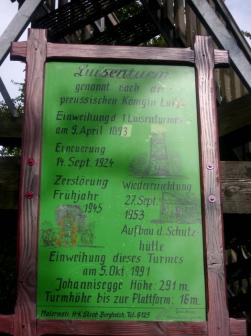 Luisenturm
genannt nach der
preussischen Königin Luise
Einweihung d. 1 Luisenturmes
am 9. April 1893
Erneuerung
14. Sept. 1924
Zerstörung
Frühjahr
1945
Wiedererrichtung
27. Sept.
1953
Aufbau d. Schutz-
hütte
Einweihung dieses Turmes
am 5. Okt. 1991
Johannisegge Höhe: 291 m.
Turmhöhe bis zur Plattform: 16 m.
Malermstr. H-K Strob Borgholzh. Tel.